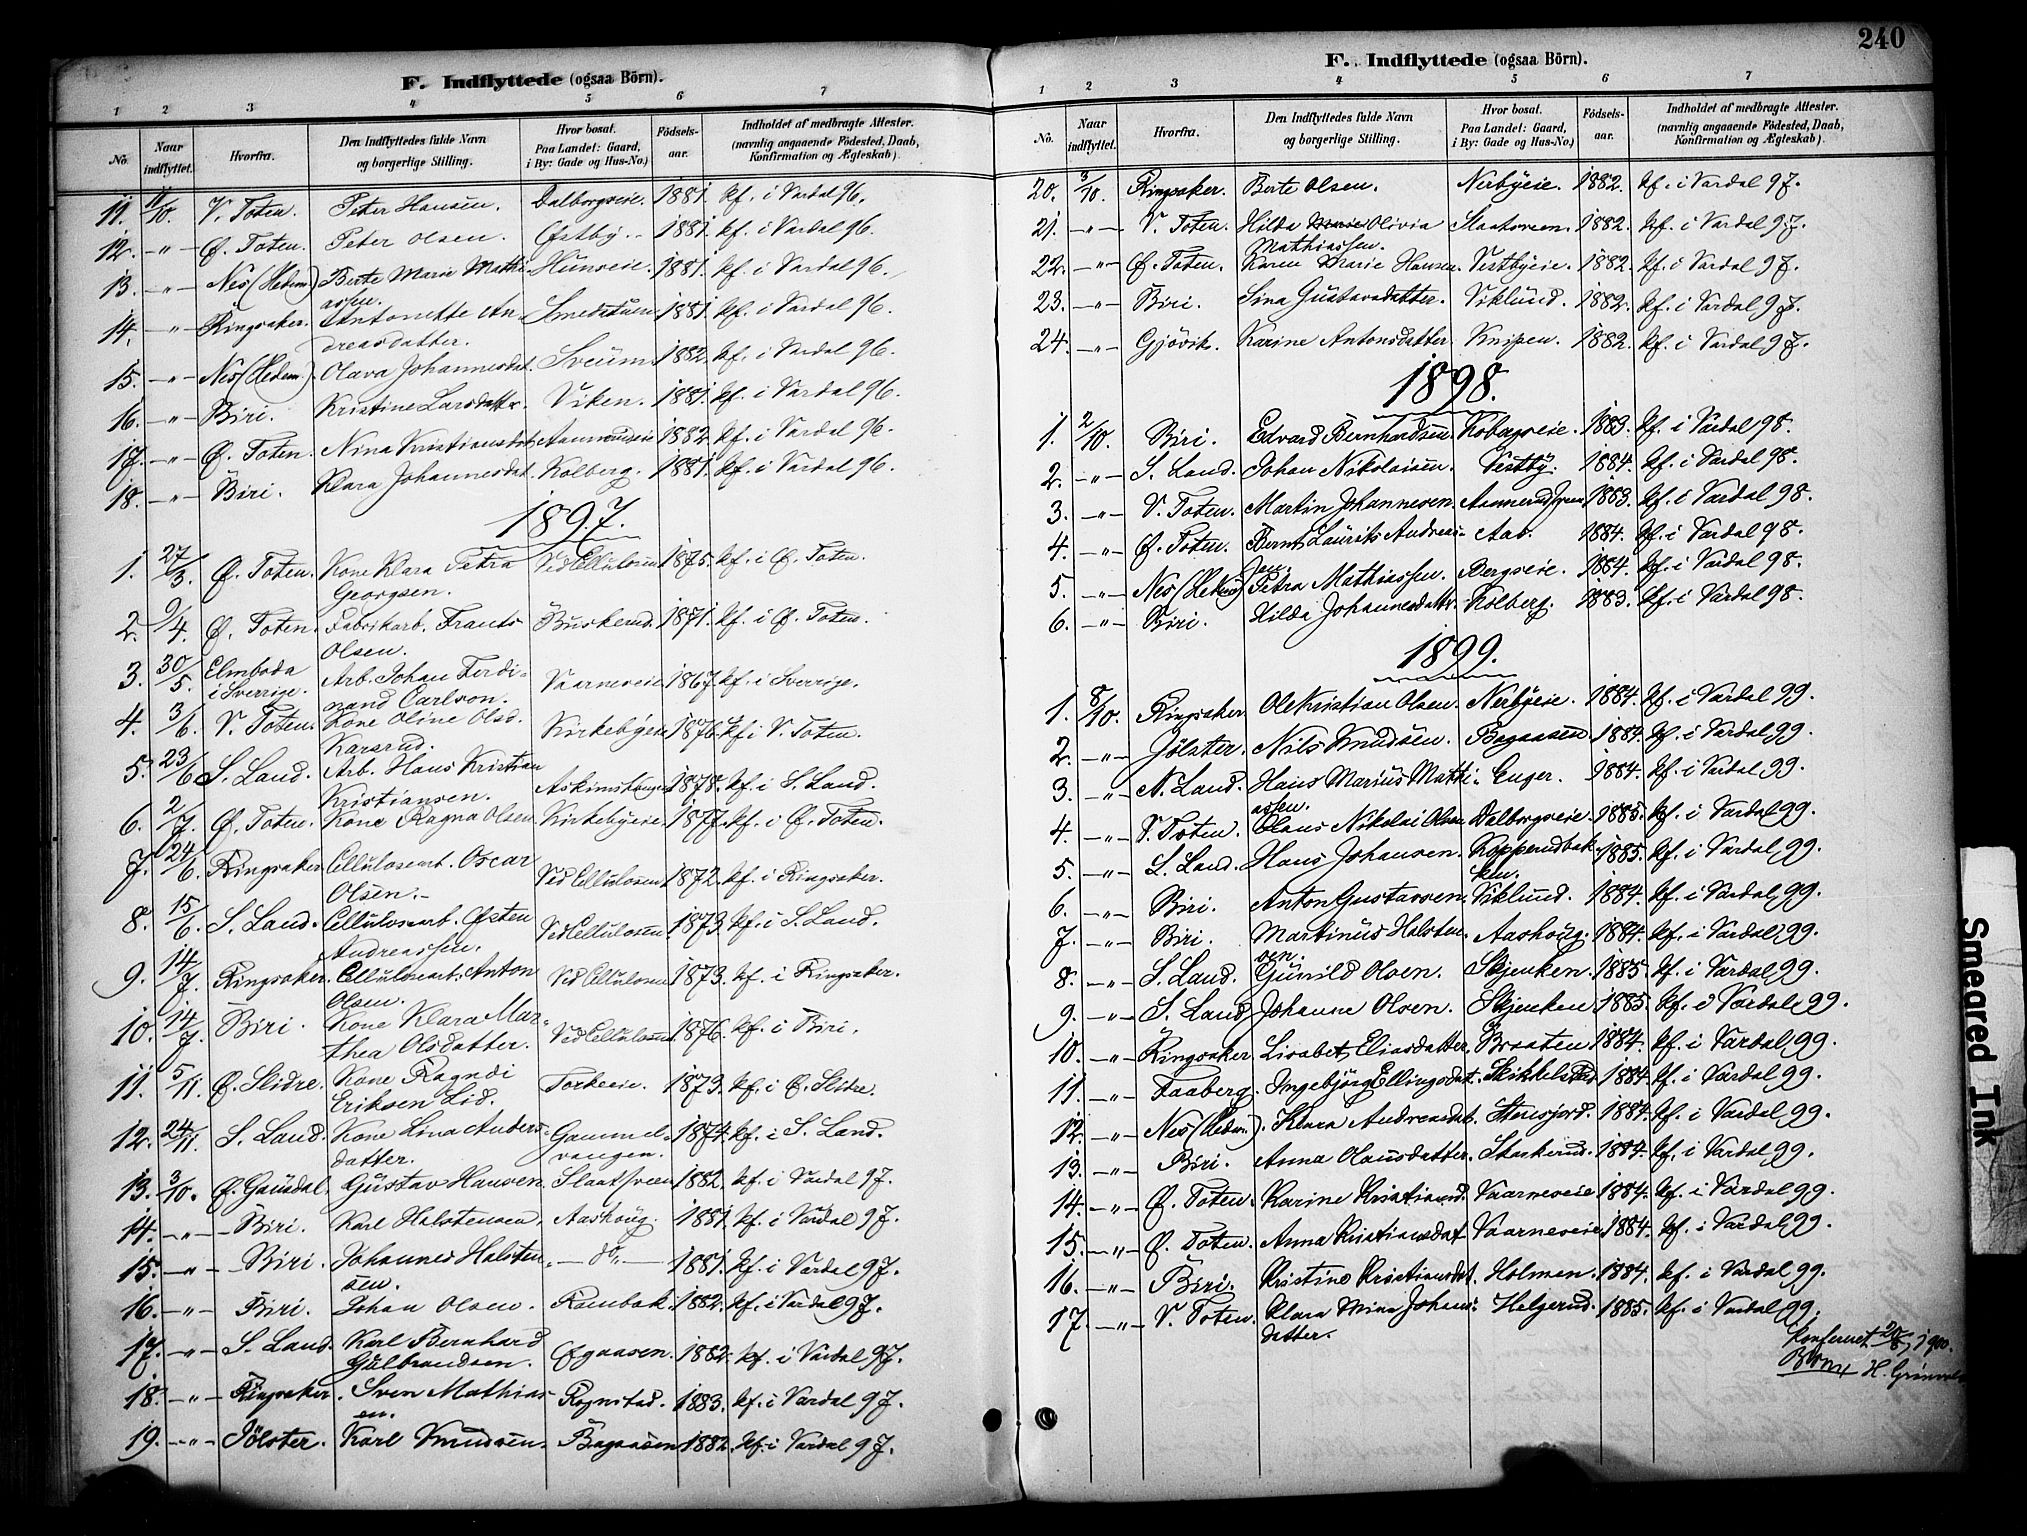 240
F. Indflyttede (ogsaa Börn).
1 2 3 4 5 6 7
No. Naar indflyttet. Hvorfra. Den Indflyttedes fulde Navn og borgerlige Stilling. Hvor bosat. Paa Landet: Gaard, i By: Gade og Hus-No.) Födsels-aar. Indholdet af medbragte Attester. (navnlig angaaende Födested, Daab, Konfirmation og Ægteskab).
11. 11/10. V. Toten. Peter Hansen. Dalborgseie. 1881. kf. i Vardal 96.
12. -"- Ø. Toten. Peter Olsen. Østby. 1881. kf. i Vardal 96.
13. -"- Nes (Hedem.) Berte Marie Mathi- Hunseie. 1881. kf. i Vardal 96.
assen.
14. -"- Ringsaker. Antonette An- Smedstuen. 1881. kf. i Vardal 96.
dreasdatter.
15. -"- Nes (Hedem.). Olava Johannesdat. Sveum. 1882. kf. i Vardal 96.
16. -"- Biri. Kristine Larsdattr. Viken. 1881. kf. i Vardal 96.
17. -"- Ø. Toten. Nina Kristiansdat. 1882. kf. i Vardal 96.
18. -"- Biri. Klara Johannesdat. Kolberg. 1881. kf. i Vardal 96.
1897.
1. 27/3. Ø. Toten. Kone Klara Petra Ved Cellulosen 1875. kf. i Ø. Toten.
Georgsen.
2. 9/4. Ø. Toten. Fabrikarb. Frants Buskerud. 1871. kf. i Ø. Toten.
Olsen.
3. 30/5. Elmboda Arb. Johan Ferdi- Vaarneseie 1867. kf. i Sverrige.
i Sverrige. nand Carlson.
4. 3/6. V. Toten. Kone Oline Olsd. Kirkebyeie 1876. kf. i V. Toten.
Karsrud.
5. 23/6 S. Land. Arb. Hans Kristian 1878. kf. i S. Land.
Kristiansen.
6. 2/7. Ø. Toten. Kone Ragna Olsen. Kirkebyeie. 1877. kf. i Ø. Toten.
7. 24/6. Ringsaker Cellulosearb. Oscar Ved Cellulosen 1872. kf. i Ringsaker.
Olsen.-
8. 15/6. S. Land. Cellulosearb. Østen Ved Cellulosen. 1873. kf. i S. Land.
Andreassen.
9. 14/7. Ringsaker. Cellulosearb. Anton Ved Cellulosen 1873. kf. i Ringsaker.
Olsen.
10. 14/7. Biri. Kone Klara Mar- Ved Cellulosen 1876. kf. i Biri.
thea Olsdatter.
11. 5/11. Ø. Slidre. Kone Ragndi Torkeeie. 1873. kf. i Ø. Slidre.
Eriksen Lid.
12. 24/11. S. Land. Kone Lina Anders- Gammel- 1874. kf. i S. Land.
datter. vangen.
13. 3/10. Ø. Gausdal. Gustav Hansen. Slaatsveen 1882. kf. i Vardal 97.
14. -"- Biri. Karl Halstensen. Aashoug. 1881. kf. i Vardal 97.
15. -"- Biri. Johannes Halsten- -do- 1881. kf. i Vardal 97.
sen.
16. -"- Biri. Johan Olsen. Rambæk. 1882. kf. i Vardal 97.
17. -"- S. Land. Karl Bernhard Øgaasen. 1882. kf. i Vardal 97.
Gulbrandsen.
18. -"- Ringsaker. Sven Mathias- Rognstad. 1883. kf. i Vardal 97.
en.
19. -"- Jölster. Karl Knudsen. Bagaasen 1882. kf. i Vardal 97.
F. Indflyttede (ogsaa Börn).
1 2 3 4 5 6 7
No. Naar indflyttet. Hvorfra. Den Indflyttedes fulde Navn og borgerlige Stilling. Hvor bosat. Paa Landet: Gaard, i By: Gade og Hus-No.) Födsels-aar. Indholdet af medbragte Attester. (navnlig angaaende Födested, Daab, Konfirmation og Ægteskab).
20. 3/10. Ringsaker. Berte Olsen. Nerbyeie. 1882. kf. i Vardal 97.
21. -"- V. Toten. Hilda Marie Olivia Slaatsveen. 1882. kf. i Vardal 97.
Mathiassen.
22. -"- Ø. Toten. Karen Marie Hansen. Vestbyeie. 1882. kf. i Vardal 97.
23. -"- Biri. Sina Gustavsdatter. Viklund. 1882. kf. i Vardal 97.
24. -"- Gjövik. Karine Antonsdatter. Knipen. 1882. kf. i Vardal 97.
1898.
1. 2/10. Biri. Edvard Bernhardsen. Kobergseie. 1883. kf. i Vardal 98.
2. -"- S. Land. Johan Nikolaisen. Vestby. 1884. kf. i Vardal 98.
3. -"- V. Toten. Martin Johannesen. 1883. kf. i Vardal 98.
4. -"- Ø. Toten. Bernt Laurits Andreas- Aas. 1884. kf. i Vardal 98.
sen.
5. -"- Nes (Hedm) Petra Mathiassen. Bergseie. 1884. kf. i Vardal 98.
6. -"- Biri. Hilda Johannesdattr. Kolberg. 1883. kf. i Vardal 98.
1899.
1. 8/10. Ringsaker Ole Kristian Olsen. Nerbyeie. 1884. kf. i Vardal 99.
2. -"- Jölster. Nils Knudsen. Bagaasen 1884. kf. i Vardal 99.
3. -"- N. Land. Hans Marius Matthi- Enger. 1884. kf. i Vardal 99.
assen.
4. -"- V. Toten. Olaus Nikolai Olsen Dalborgseie. 1885. kf. i Vardal 99.
5. -"- S. Land. Hans Johansen. Kopperudbak- 1885. kf. i Vardal 99.
ken.
6. -"- Biri. Anton Gustavsen. Viklund. 1884. kf. i Vardal 99.
7. -"- Biri. Martinus Halsten- Aashoug. 1884. kf. i Vardal 99.
sen.
8. -"- S. Land. Gunild Olsen. Skjenken. 1885. kf. i Vardal 99.
9. -"- S. Land Johanne Olsen. Skjenken 1885. kf. i Vardal 99.
10. -"- Ringsaker. Lisabet Eliasdatter. Braaten 1884. kf. i Vardal 99.
11. -"- Faaberg. Ingebjörg Ellingsdat. 1884. kf. i Vardal 99.
12. -"- Nes (Hedm.). Klara Andreasdat. Stensjord. 1884. kf. i Vardal 99.
13. -"- Biri. Anna Olausdatter. Staskerud. 1884. kf. i Vardal 99.
14. -"- Ø. Toten. Karine Kristiansd. Vaarneseie 1884. kf. i Vardal 99.
15. -"- Ø. Toten. Anna Kristiansdat. Vaarneseie 1884. kf. i Vardal 99.
16. -"- Biri. Kristine Kristiansdat. Holmen. 1884. kf. i Vardal 99.
17. -"- V. Toten. Klara Mina Johans- Helgerud. 1885. kf. i Vardal 99.
datter.
Konfereret 1900.
H. Grönvold
Smeared Ink